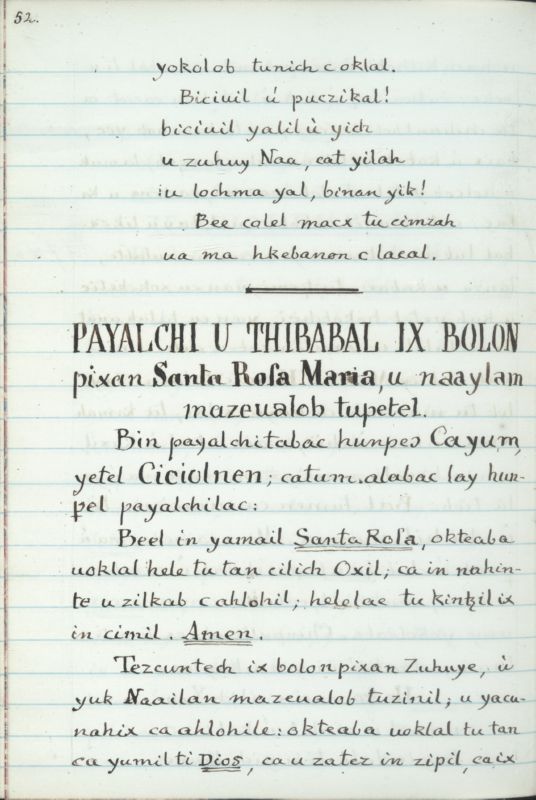 52.
yokolob tunich c oklal.
Biciuil ú puczikal!
biciuil yalil ù yich
u zuhuy Naa, cat yilah
iu lochma yal, binan yik!
Bee colel macx tu cimzah
ua ma hkebanon c lacal.
PAYALCHI U THIBABAL IX BOLON
pixan Santa Roſa Maria, u naaylam
mazeualob tupetel.
Bin payalchitabac hunpeɔ Cayum,
yetel Ciciolnen; catum.alabac lay hun-
pel payalchilac:
Beel in yamail Santa Roſa, okteaba
uoklal hele tu tan cilich Oxil; ca in nahin-
te u zilkab c ahlohil; helelae tu kintzil ix
in cimil. Amen.
Tezcuntech ix bolonpixan Zuhuye, ù
yuk Naailan mazeualob tuzinil; u yacu-
nahix ca ahlohile: okteaba uoklal tu tan
ca yumil ti Dios, ca u zatez in zipil, ca ix